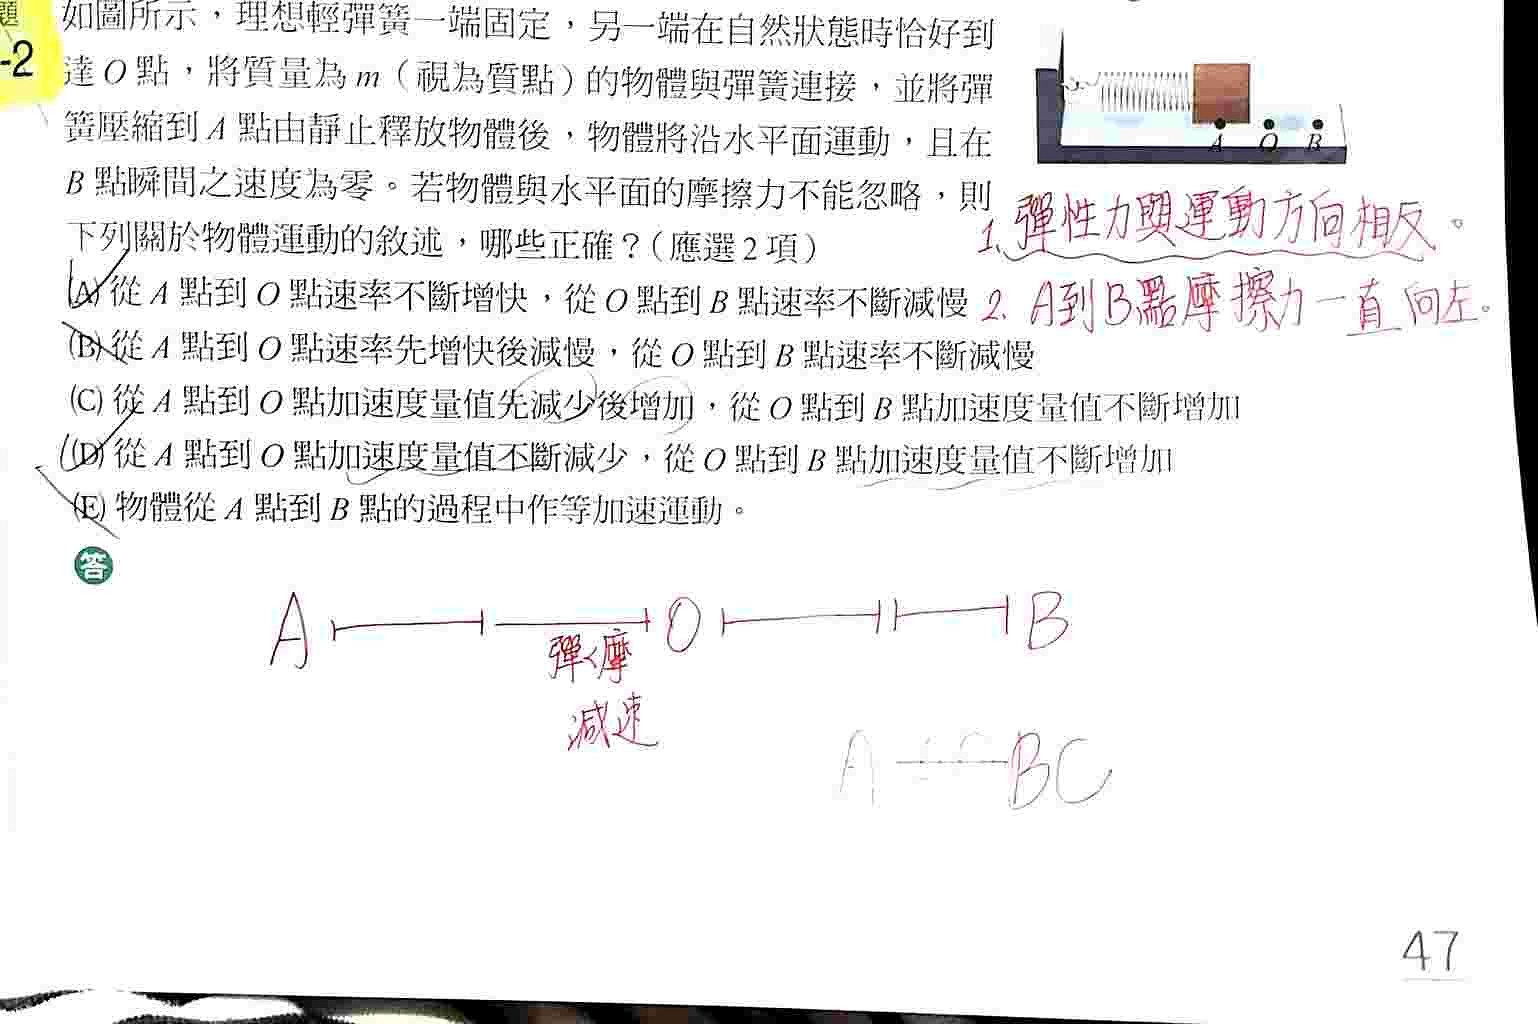 題
-2
如圖所示，理想輕彈簧一端固定，另一端在自然狀態時恰好到
達 O 點，將質量為 m（視為質點）的物體與彈簧連接，並將彈
簧壓縮到 A 點由靜止釋放物體後，物體將沿水平面運動，且在
B 點瞬間之速度為零。若物體與水平面的摩擦力不能忽略，則
下列關於物體運動的敘述，哪些正確？（應選 2 項）
(A) 從 A 點到 O 點速率不斷增快，從 O 點到 B 點速率不斷減慢
(B) 從 A 點到 O 點速率先增快後減慢，從 O 點到 B 點速率不斷減慢
(C) 從 A 點到 O 點加速度量值先減少後增加，從 O 點到 B 點加速度量值不斷增加
(D) 從 A 點到 O 點加速度量值不斷減少，從 O 點到 B 點加速度量值不斷增加
(E) 物體從 A 點到 B 點的過程中作等加速運動。
答
A O B
1. 彈性力與運動方向相反。
2. A到B點摩擦力一直向左。
A O B
彈<摩
減速
A BC
47